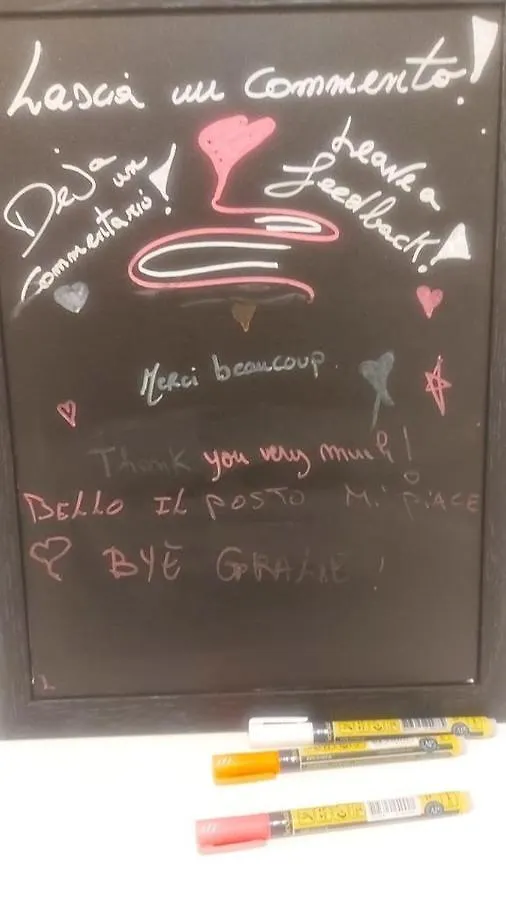 Lascia un commento!
Deja un commentario!
Leave a feedback!
Merci beaucoup
Thank you very much!
BELLO IL POSTO Mi PiACE
BYE GRAZIE!